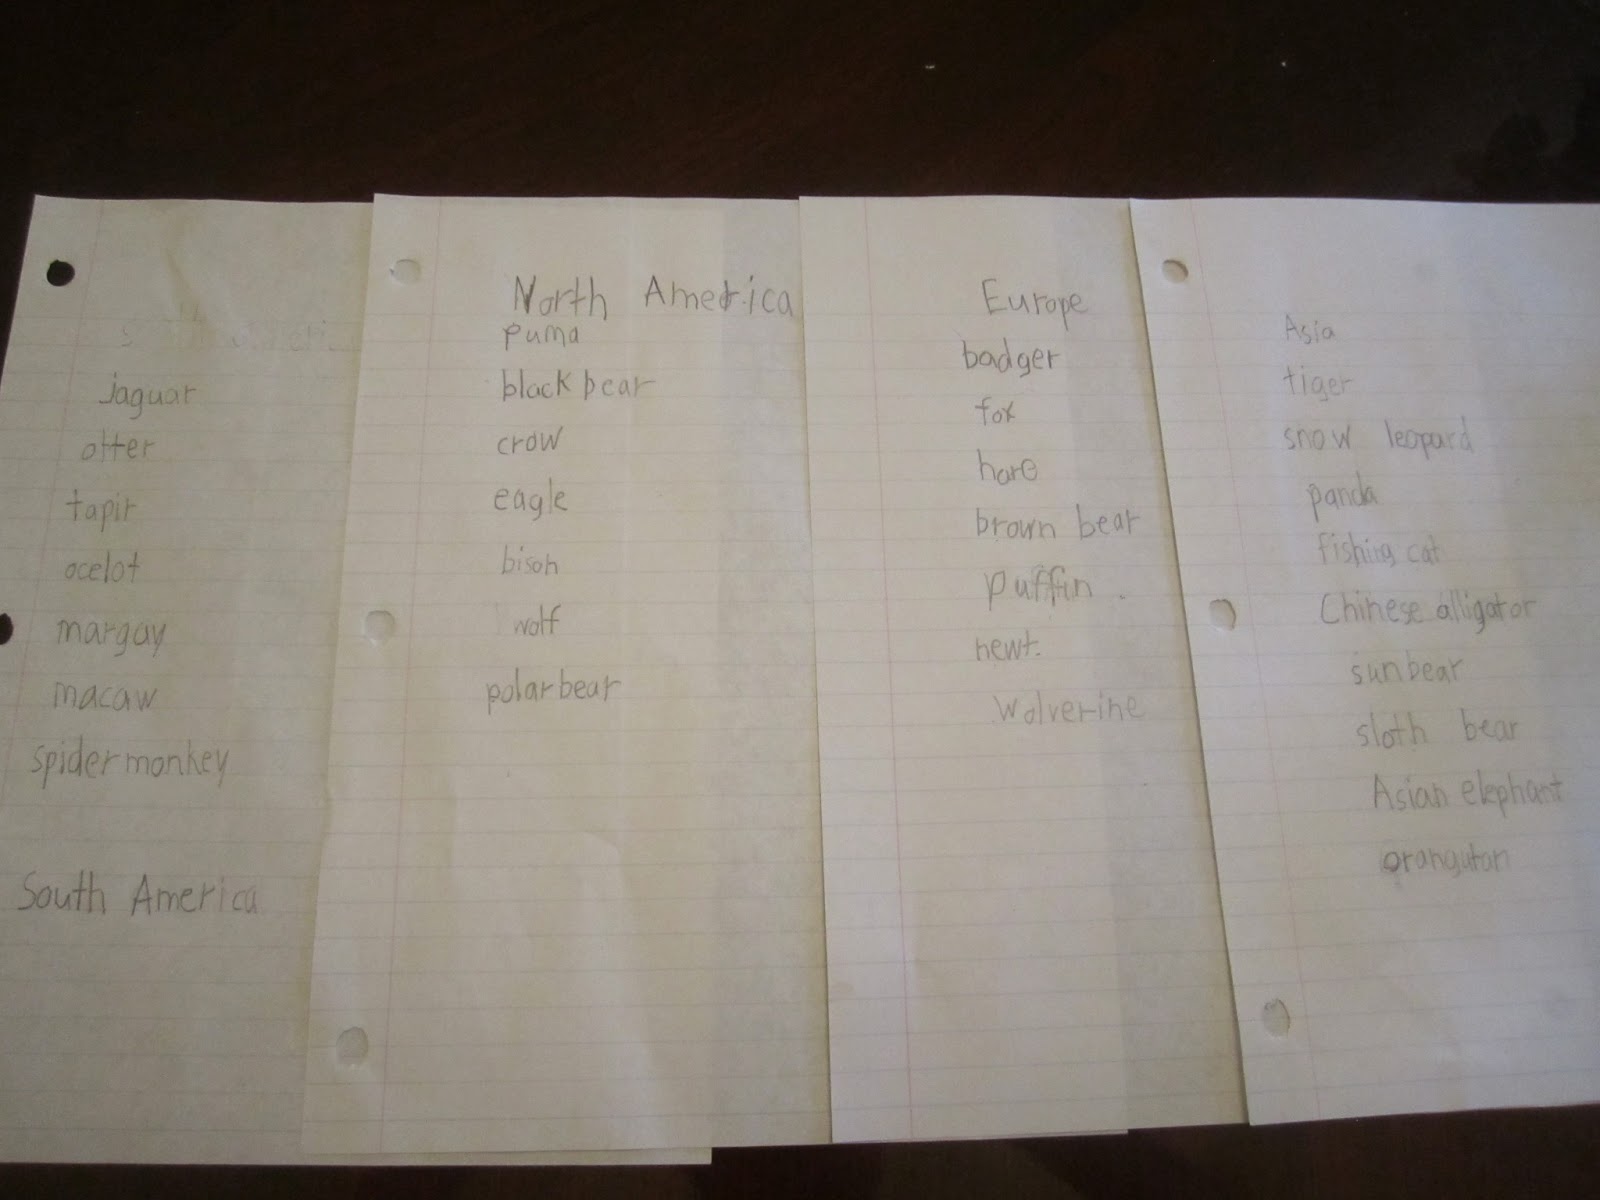 jaguar
otter
tapir
ocelot
margay
macaw
spider monkey
South America
North America
puma
black bear
crow
eagle
bison
wolf
polar bear
Europe
badger
fox
hare
brown bear
puffin.
newt.
Wolverine
Asia
tiger
snow leopard
panda
fishing cat
Chinese alligator
sun bear
sloth bear
Asian elephant
orangutan